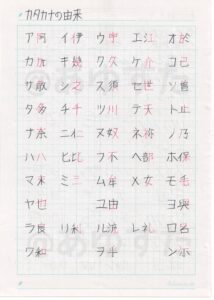 カタカナの由来
ア阿 イ伊 ウ宇 エ江 オ於
カ加 キ幾 ク久 ケ介 コ己
サ散 シ之 ス須 セ世 ソ曽
タ多 チ千 ツ川 テ天 ト止
ナ奈 ニ仁 ヌ奴 ネ祢 ノ乃
ハ八 ヒ比 フ不 ヘ部 ホ保
マ末 ミ三 ム牟 メ女 モ毛
ヤ也 ユ由 ヨ與
ラ良 リ利 ル流 レ礼 ロ呂
ワ和 ヲ乎 ン尓